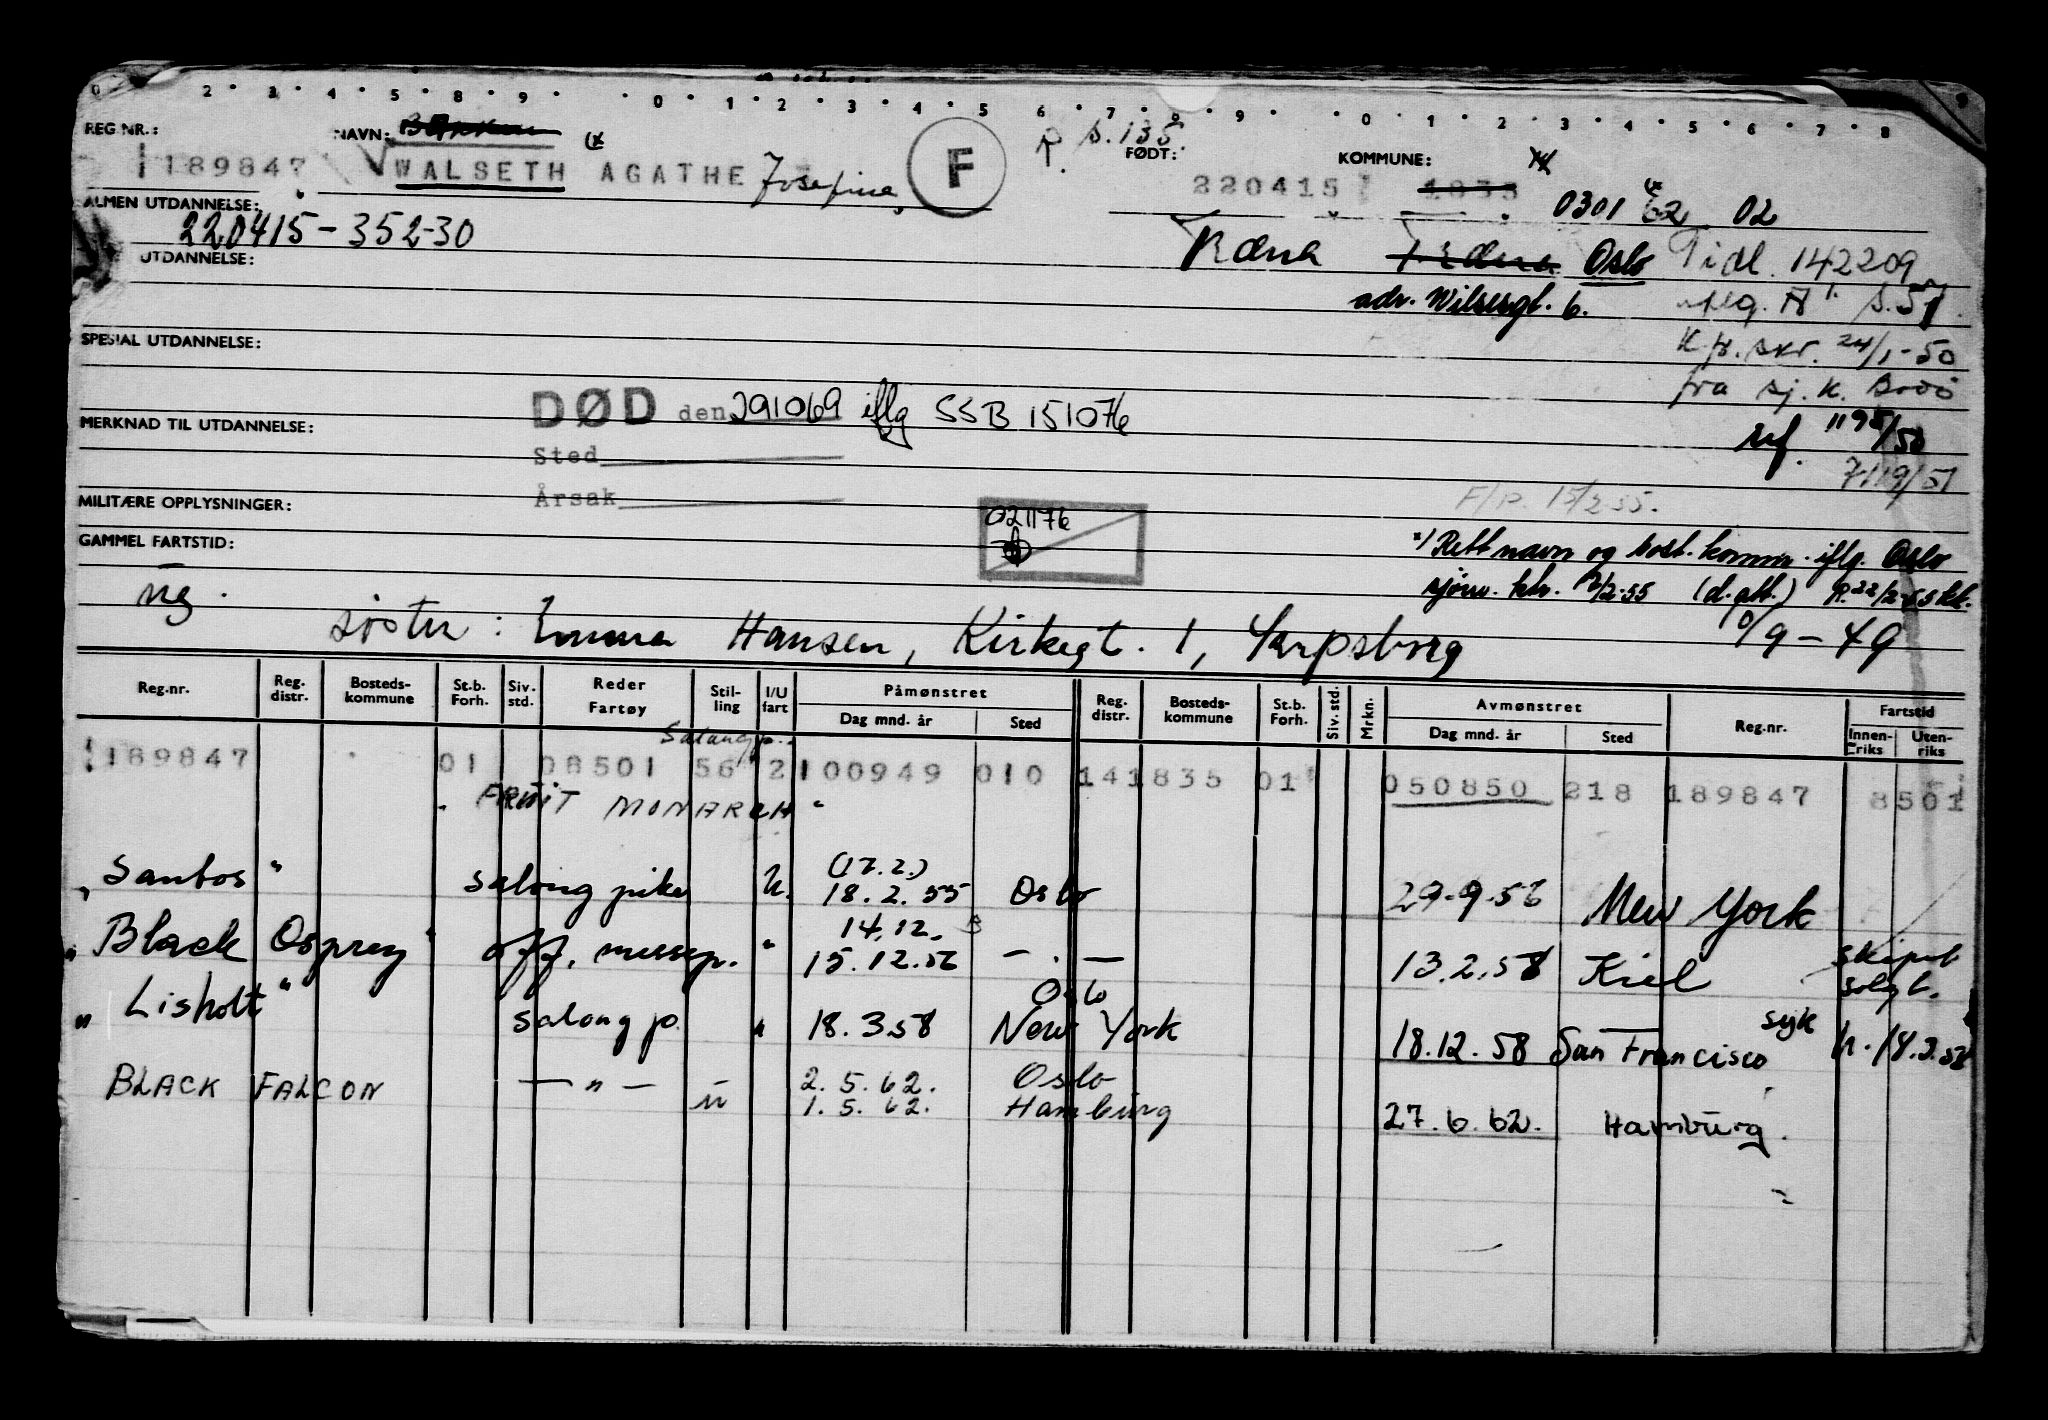 0 2 3 4 5 8 9 0 1 2 3 4 5 6 7 8 9 0 1 2 3 4 5 6 7 8
REG NR.: NAVN: (x R s. 135. FØDT: KOMMUNE: x/
189847 WALSETH AGATHE Josefine, F 220415 1835 0301 02
ALMEN UTDANNELSE:
220415-352-30 Træna Træna Oslo Tidl. 142209
UTDANNELSE:
adr. Wilsesgt. 6. iflg. A s. 57.
SPESIAL UTDANNELSE: K.fr. skr. 24/1-50
fra sj. k. Bodø
DØD den 291069 iflg SSB 151076
MERKNAD TIL UTDANNELSE: uf. 1195/50
Sted 7119/51
Årsak F/R. 15/2 55.
MILITÆRE OPPLYSNINGER: 021176
GAMMEL FARTSTID: x/ Rett navn og bost. komm. iflg. Oslo
ug. sjøm. ktr. (d. att.)
søster: Emma Hansen, Kirkegt. 1, Sarpsborg 10/9-49
Reg.nr. Reg. distr. Bosteds-kommune St.b. Forh. Siv. std. Reder Fartøy Stil-ling I/U fart Påmønstret Dag mnd. år Sted Reg. distr. Bosteds-kommune St.b. Forh. Siv. std. Mrkn. Avmønstret Dag mnd. år Sted Reg.nr. Fartstid Innen-riks Uten-riks
Salongp.
189847 01 08501 56 2 100949 010 141835 01 050850 218 189847 8501
"FRUIT MONARCH"
(17.2.)
"Santos" salongpike u. 18.2.55 Oslo 29.9.56 New York
14.12.
"Black Osprey" off. messep. " 15.12.56 — . — 13.2.58 Kiel skipet solgt.
Oslo
"Lisholt" salong p. " 18.3.58 New York 18.12.58 San Francisco syk h. 18.3.58
BLACK FALCON — " — u 2.5.62. Oslo
1.5.62. Hamburg 27.6.62. Hamburg.